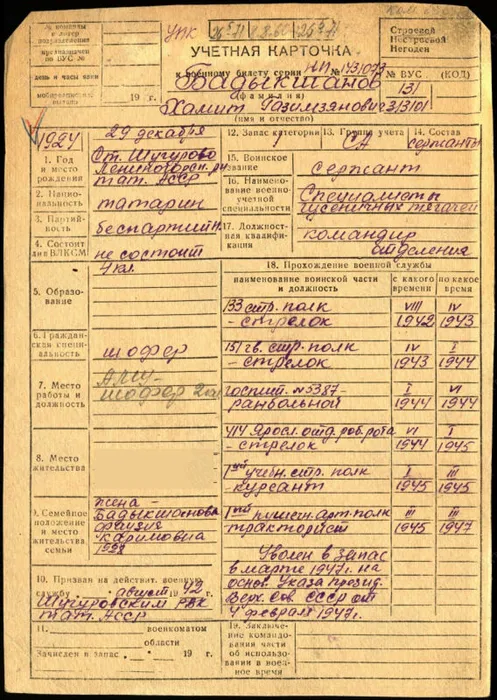 УПК
УЧЕТНАЯ КАРТОЧКА
к военному билету серии НП №
Бадыкшанов
(фамилия)
Хамит Газимзянович
(имя и отчество)
Строевой
Нестроевой
Негоден
№ ВУС (КОД)
131
№ команды
и номер
подразделения
предназначен
по ВУС №
день и часы явки
19 г.
1924 29 декабря
1. Год
и место
рождения
Ст. Шугурово
Лениногорск. р-н
тат. АССР
2. Национальность
татарин
3. Партийность
беспартийн
4. Состоит
ли в ВЛКСМ
не состоит
5. Образование
4 кл.
6. Гражданская специальность
шофер
7. Место
работы и
должность
шофер
8. Место
жительства
9. Семейное
положение и
место жительства
семьи
жена -
Бадыкшанова
Фаузия
Каримовна
10. Призван на действит. военную
службу август 42
Шугуровским РВК
тат. АССР
11. военкоматом
области
Зачислен в запас 19 г.
12. Запас категории 1
13. Группа учета СА
14. Состав сержанты
15. Воинское
звание
сержант
16. Наименование военно-учетной
специальности
Специалисты
гусеничных тягачей
17. Должностная квалификация
командир
отделения
18. Прохождение военной службы
наименование воинской части
и должность
с какого
времени
по какое
время
133 стр. полк VIII IV
- стрелок 1942 1943
151 гв. стр. полк IV I
- стрелок 1943 1944
госпит. №5387- I VI
ранбольной 1944 1944
414 яросл. отд. роб. рота VI I
- стрелок 1944 1945
1ый учебн. стр. полк I III
курсант 1945 1945
1ый пушечн. арт. полк III III
тракторист 1945 1947
Уволен в запас
в марте 1947г. на
основ. Указа презид.
Верх. Сов. СССР от
4 февраля 1947г.
19. Заключение
командования
части
об использовании
в военное время